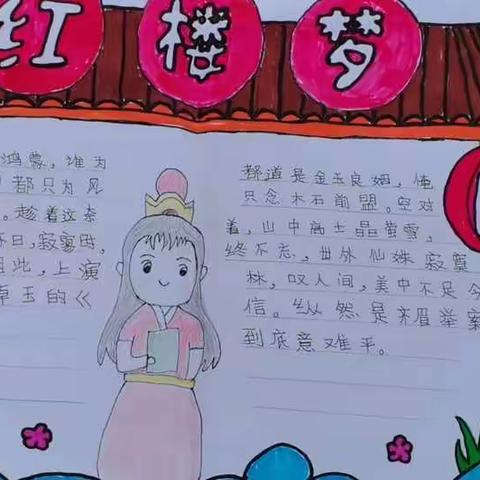 红楼梦
鸿蒙,谁为
都只为风
。趁着这奈
日,寂寥时,
因此,上演
卓玉的《
都道是金玉良姻,俺
只念木石前盟。空对
着,山中高士晶莹雪,
终不忘,世外仙姝寂寞
林,叹人间,美中不足今
信。纵然是齐眉举案
到底意难平。